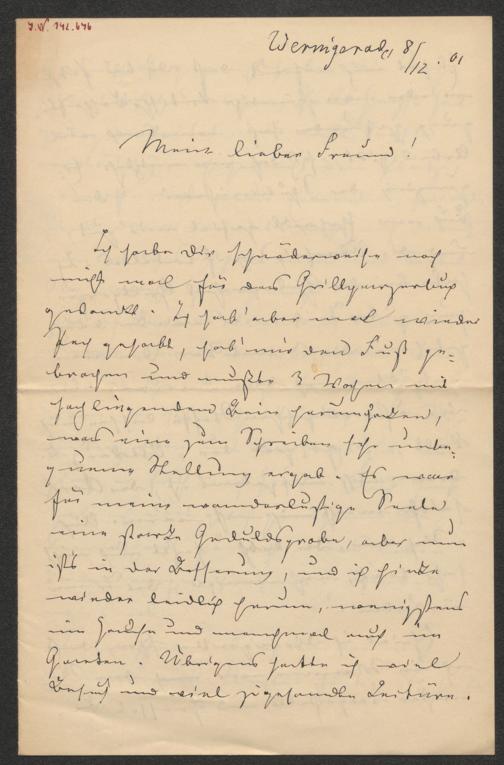 J.N. 142.646
Wernigerode 8/12. 01
Mein lieber Freund!
Ich habe Dir schnöderweise noch
nicht mal für das Grillparzerbuch
gedankt. Ich hab' aber mal wieder
Pech gehabt, hab' mir den Fuß ge-
brochen und mußte 3 Wochen mit
hochliegendem Bein herumhocken,
was eine zum Schreiben sehr unbe-
queme Stellung ergab. Es war
für meine wanderlustige Seele
eine starke Geduldsprobe, aber nun
ists in der Besserung, und ich hinke
wieder leidlich herum, wenigstens
im Hause und manchmal auch im
Garten. Übrigens hatte ich viel
Besuch und viel zugesandte Lektüre.